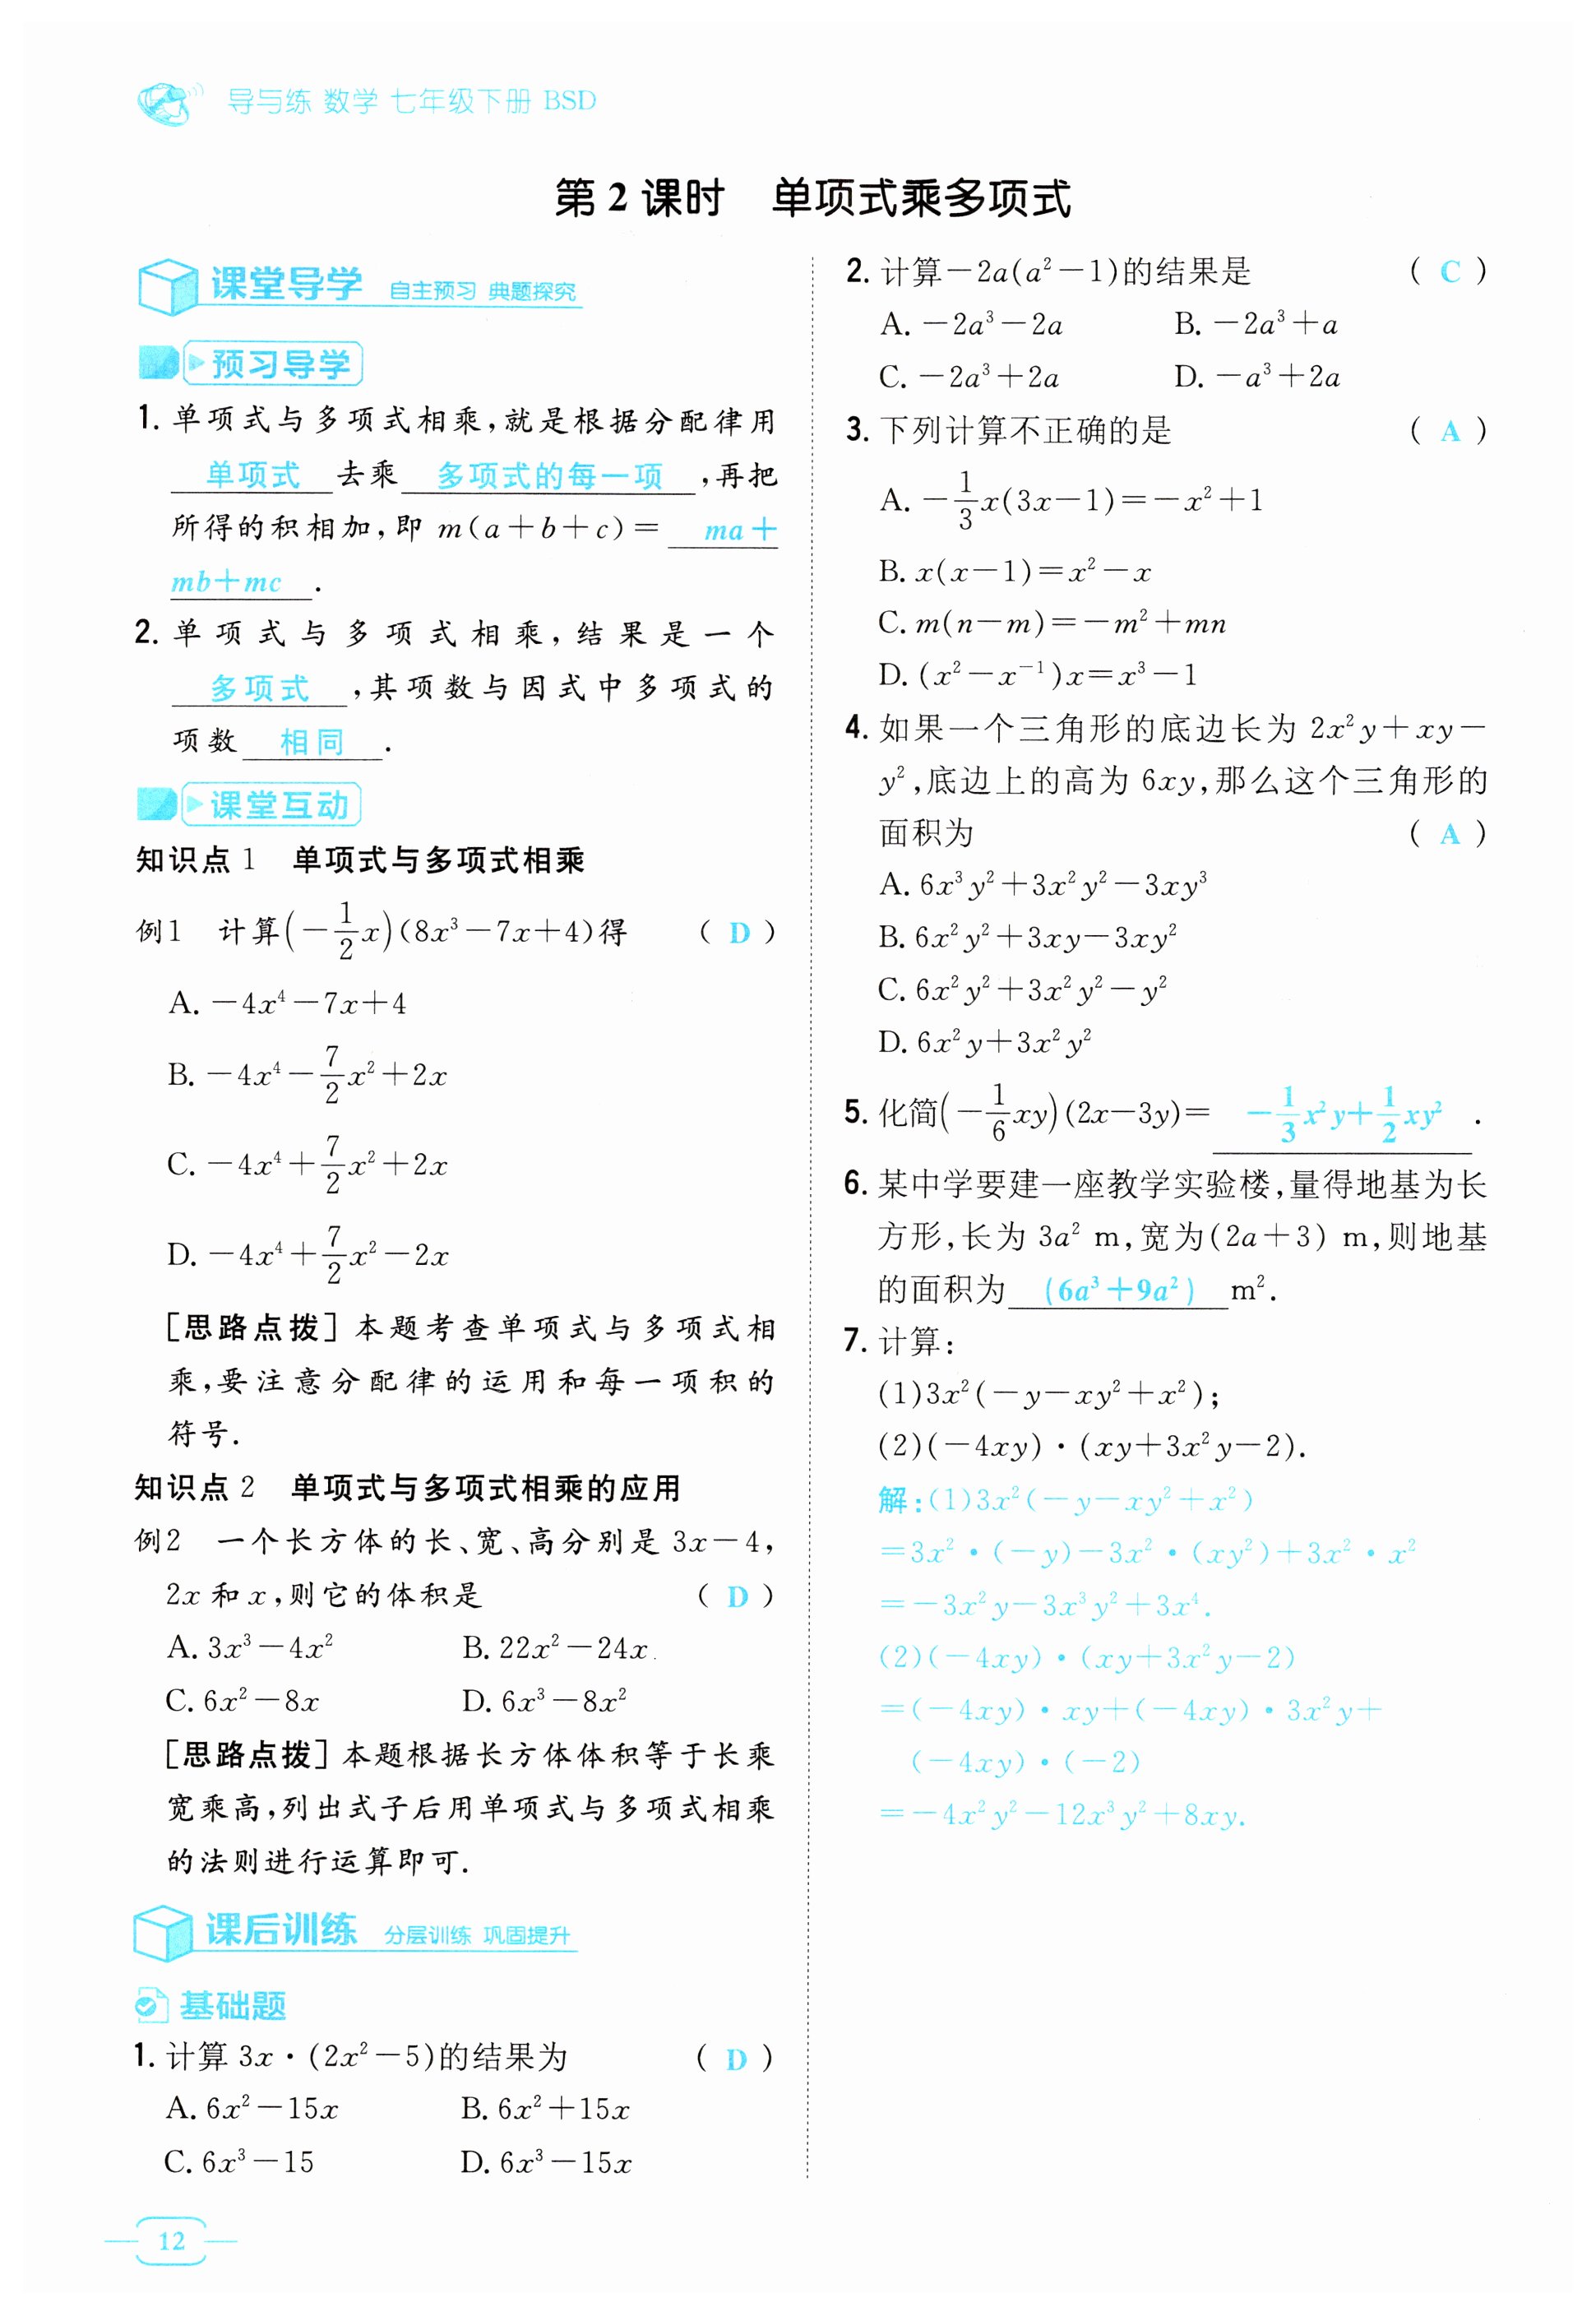 导与练 数学 七年级下册 BSD
第 2 课时 单项式乘多项式
课堂导学 自主预习 典题探究
预习导学
1. 单项式与多项式相乘,就是根据分配律用
单项式 去乘 多项式的每一项 ,再把
所得的积相加,即 m(a+b+c)= ma+
mb+mc .
2. 单项式与多项式相乘,结果是一个
多项式 ,其项数与因式中多项式的
项数 相同 .
课堂互动
知识点 1 单项式与多项式相乘
例1 计算(-1/2x)(8x³-7x+4)得 ( D )
A. -4x⁴-7x+4
B. -4x⁴-7/2x²+2x
C. -4x⁴+7/2x²+2x
D. -4x⁴+7/2x²-2x
[思路点拨] 本题考查单项式与多项式相
乘,要注意分配律的运用和每一项积的
符号.
知识点 2 单项式与多项式相乘的应用
例2 一个长方体的长、宽、高分别是 3x-4,
2x 和 x,则它的体积是 ( D )
A. 3x³-4x² B. 22x²-24x
C. 6x²-8x D. 6x³-8x²
[思路点拨] 本题根据长方体体积等于长乘
宽乘高,列出式子后用单项式与多项式相乘
的法则进行运算即可.
课后训练 分层训练 巩固提升
基础题
1. 计算 3x·(2x²-5)的结果为 ( D )
A. 6x²-15x B. 6x²+15x
C. 6x³-15 D. 6x³-15x
2. 计算-2a(a²-1)的结果是 ( C )
A. -2a³-2a B. -2a³+a
C. -2a³+2a D. -a³+2a
3. 下列计算不正确的是 ( A )
A. -1/3x(3x-1)=-x²+1
B. x(x-1)=x²-x
C. m(n-m)=-m²+mn
D. (x²-x⁻¹)x=x³-1
4. 如果一个三角形的底边长为 2x²y+xy-
y²,底边上的高为 6xy,那么这个三角形的
面积为 ( A )
A. 6x³y²+3x²y²-3xy³
B. 6x²y²+3xy-3xy²
C. 6x²y²+3x²y²-y²
D. 6x²y+3x²y²
5. 化简(-1/6xy)(2x-3y)= -1/3x²y+1/2xy² .
6. 某中学要建一座教学实验楼,量得地基为长
方形,长为 3a² m,宽为(2a+3) m,则地基
的面积为 (6a³+9a²) m².
7. 计算:
(1)3x²(-y-xy²+x²);
(2)(-4xy)·(xy+3x²y-2).
解:(1)3x²(-y-xy²+x²)
=3x²·(-y)-3x²·(xy²)+3x²·x²
=-3x²y-3x³y²+3x⁴.
(2)(-4xy)·(xy+3x²y-2)
=(-4xy)·xy+(-4xy)·3x²y+
(-4xy)·(-2)
=-4x²y²-12x³y²+8xy.
12